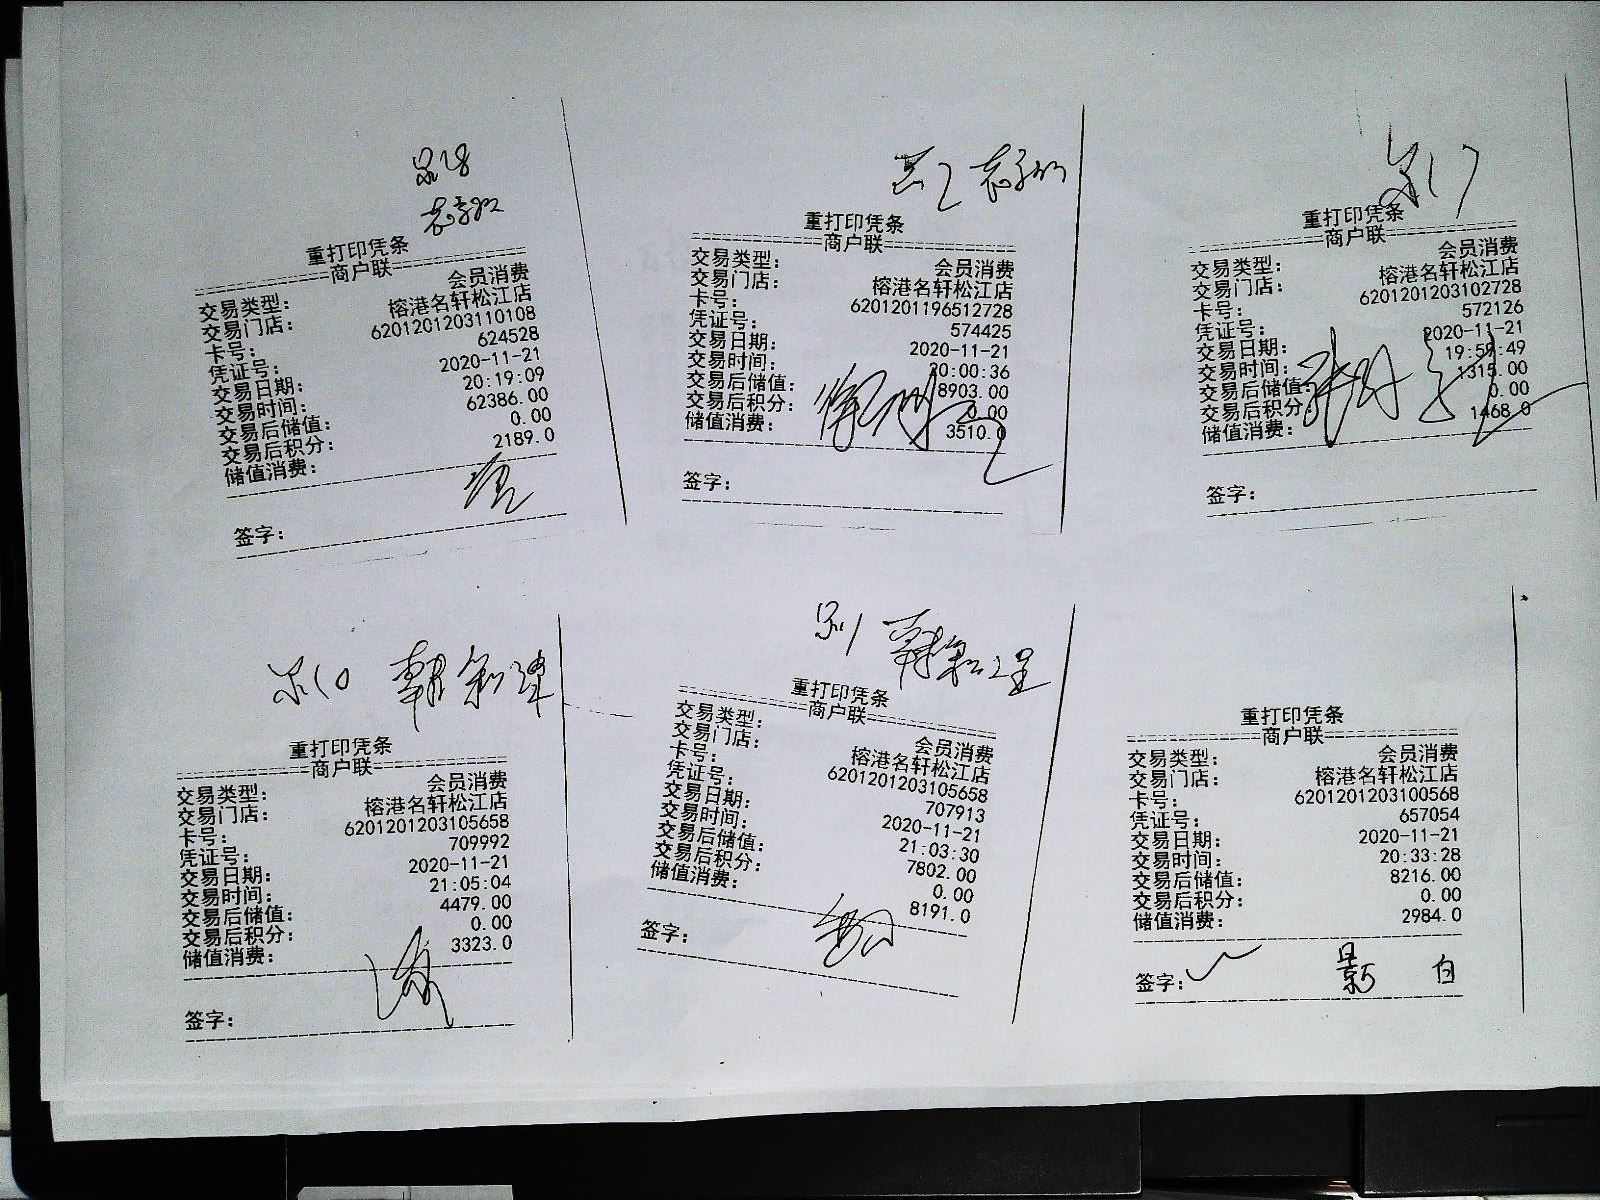 重打印凭条
商户联
交易类型： 会员消费
交易门店： 榕港名轩松江店
卡号： 6201201203110108
凭证号： 624528
交易日期： 2020-11-21
交易时间： 20:19:09
交易后储值： 62386.00
交易后积分： 0.00
储值消费： 2189.0
签字：
重打印凭条
商户联
交易类型： 会员消费
交易门店： 榕港名轩松江店
卡号： 6201201196512728
凭证号： 574425
交易日期： 2020-11-21
交易时间： 20:00:36
交易后储值： 8903.00
交易后积分： 0.00
储值消费： 3510.0
签字：
重打印凭条
商户联
交易类型： 会员消费
交易门店： 榕港名轩松江店
卡号： 6201201203102728
凭证号： 572126
交易日期： 2020-11-21
交易时间： 19:59:49
交易后储值： 1315.00
交易后积分： 0.00
储值消费： 1468.0
签字：
重打印凭条
商户联
交易类型： 会员消费
交易门店： 榕港名轩松江店
卡号： 6201201203105658
凭证号： 709992
交易日期： 2020-11-21
交易时间： 21:05:04
交易后储值： 4479.00
交易后积分： 0.00
储值消费： 3323.0
签字：
重打印凭条
商户联
交易类型： 会员消费
交易门店： 榕港名轩松江店
卡号： 6201201203105658
凭证号： 707913
交易日期： 2020-11-21
交易时间： 21:03:30
交易后储值： 7802.00
交易后积分： 0.00
储值消费： 8191.0
签字：
重打印凭条
商户联
交易类型： 会员消费
交易门店： 榕港名轩松江店
卡号： 6201201203100568
凭证号： 657054
交易日期： 2020-11-21
交易时间： 20:33:28
交易后储值： 8216.00
交易后积分： 0.00
储值消费： 2984.0
签字：